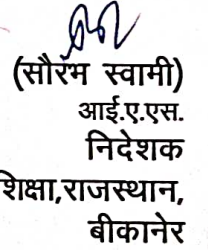 (सौरभ स्वामी)
आई.ए.एस.
निदेशक
शिक्षा,राजस्थान,
बीकानेर